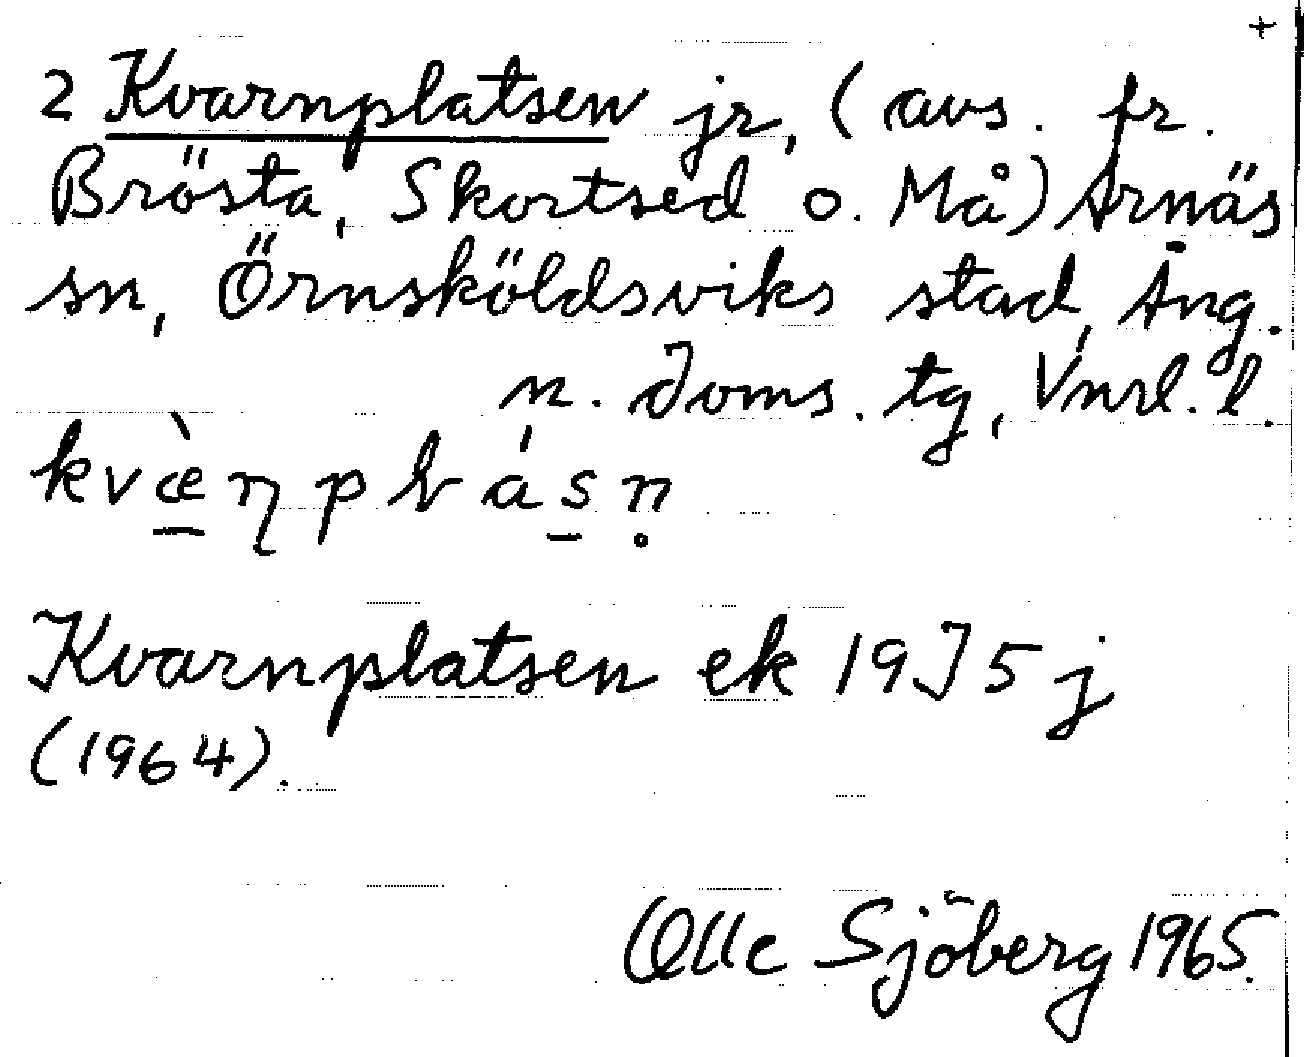 +
2 Kvarnplatsen jr, (avs. fr.
Brösta, Skortsed o. Må) Arnäs
sn, Örnsköldsviks stad, Ång.
n. doms. tg, Vnrl. l.
Kvarnplatsen ek 19J5j
(1964).
Olle Sjöberg 1965.